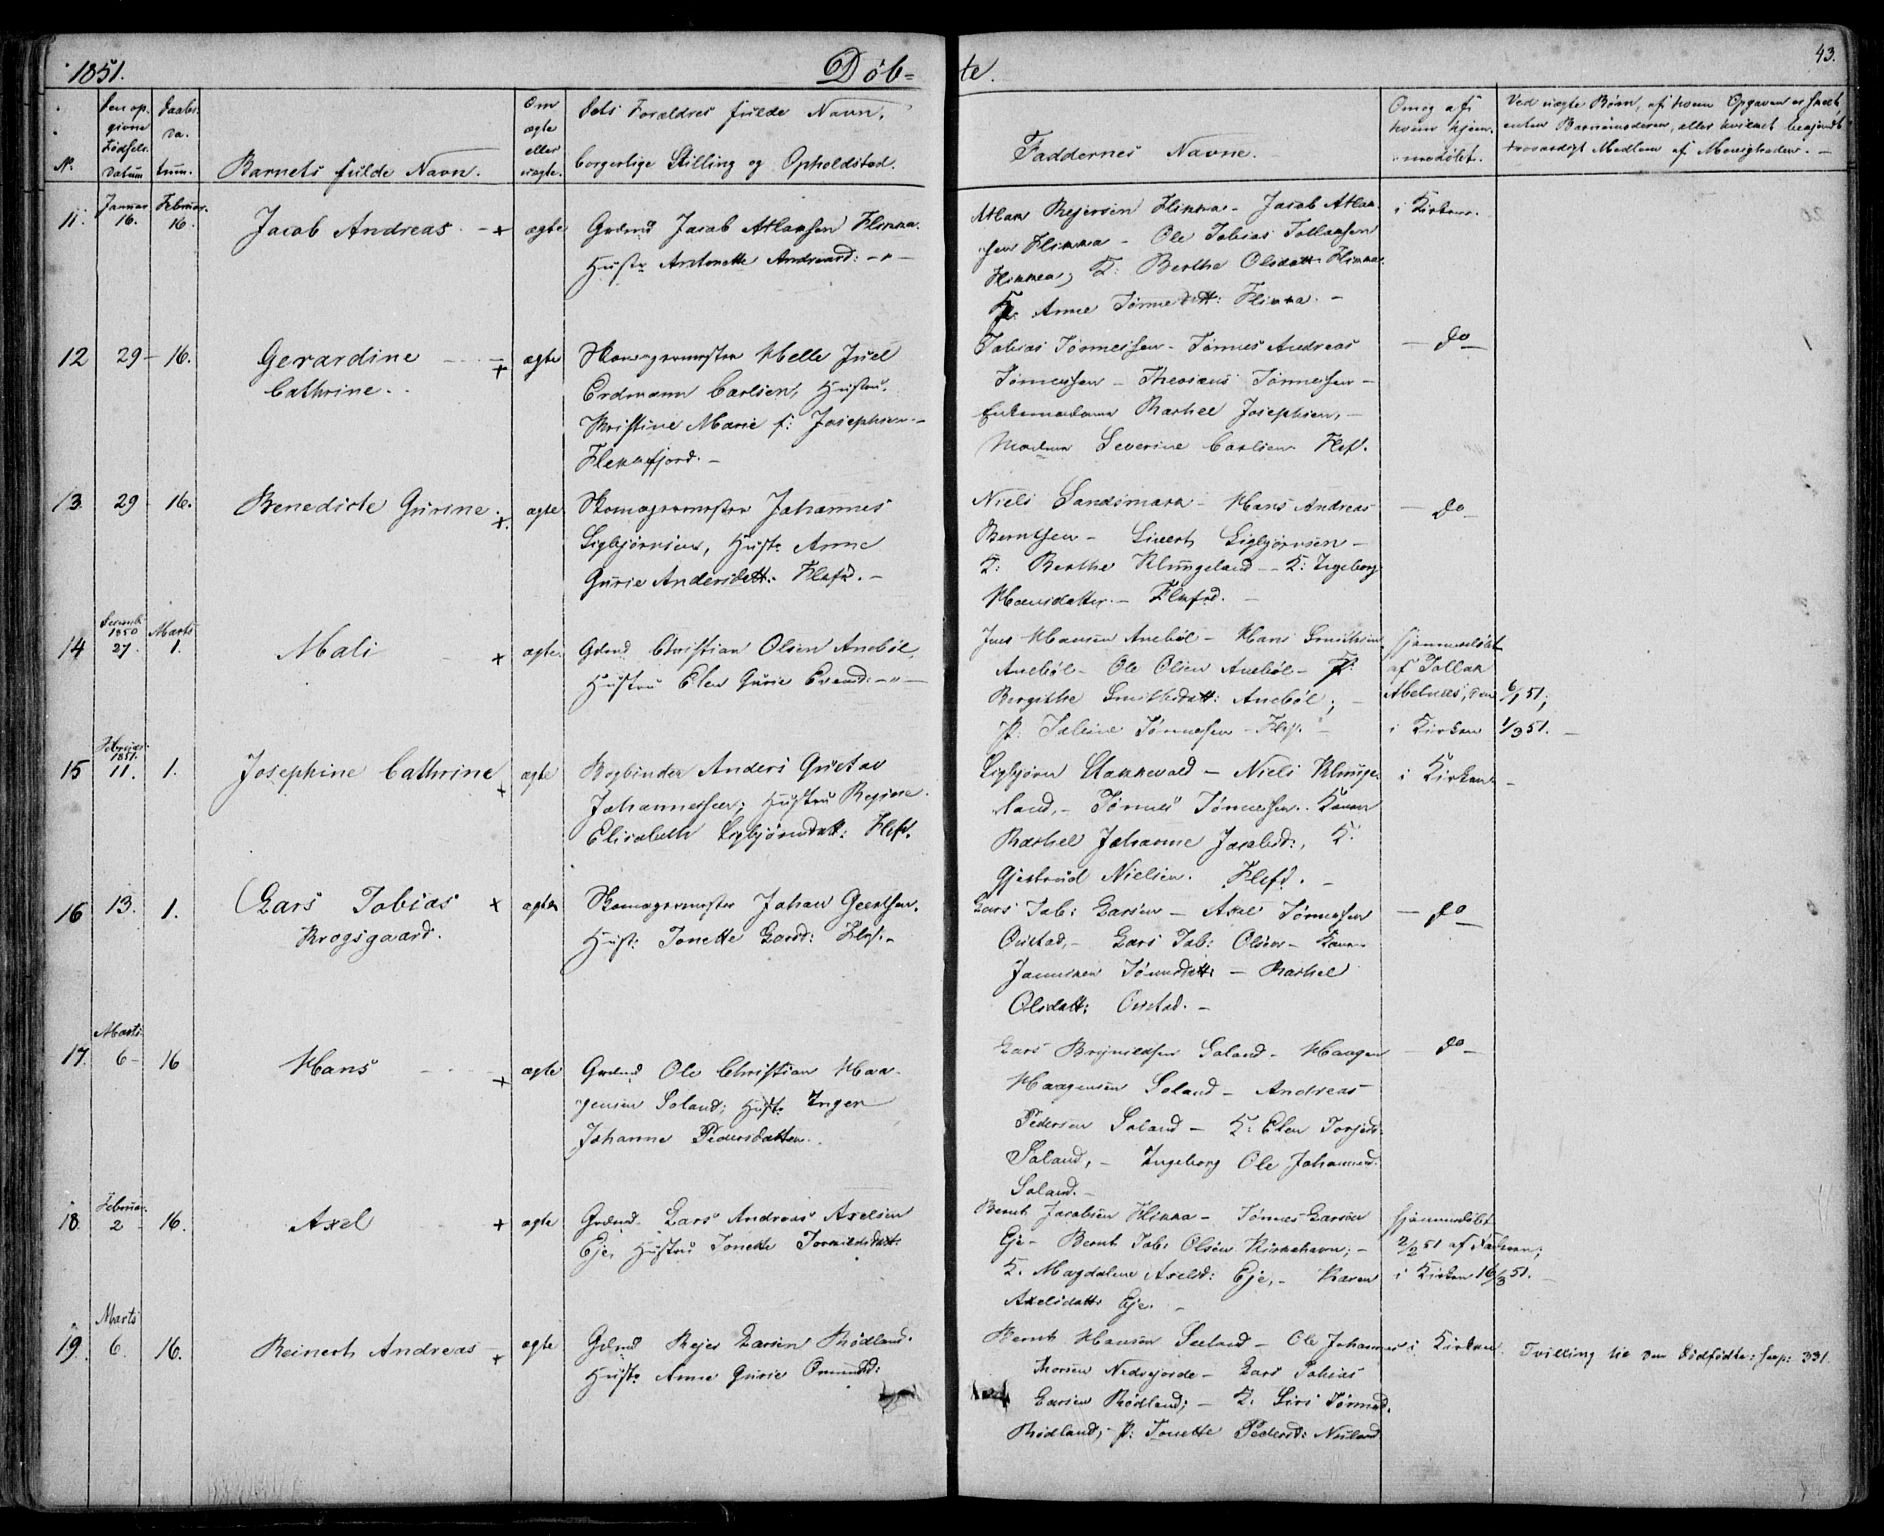 1851. Döb= te. 43.
No.
Den op-
givne
Födsels
Datum
Daabs
da-
tum.
Barnets fulde Navn.
Om
ægte
eller
uægte.
Dets Forældres fulde Navn,
borgerlige Stilling og Opholdsted.
Faddernes Navne.
Om og af
hvem hjem-
medöbt.
Ved uægte Börn, af hvem Opgaven er skeet,
enten Barnemoderen, eller hvilket bekjendt
troværdigt Medlem af Menigheden. —
11. Januar 16. Februar 16. Jacob Andreas + ægte
Grdmd Jacob Atlaksen Flikka.
Hustr Antonette Andreasd: — " —
Atlak Rejersen Flikka — Jacob Atlak-
sen Flikka — Ole Tobias Tollaksen
Flikka, K: Berthe Olsdatt. Flikka.
P. Anne Tönnesdatt: Flikka. —
i Kirken.
12 29 — 16. Gerardine
Cathrine. + ægte
Skomagermester Helle Juel
Erdmann Carlsen, Hustru.
Kristine Marie f: Josephsen. —
Flekkefjord. —
Tobias Tönnessen — Tönnes Andreas
Tönnessen — Theodeus Tönnessen —
Enkemadame Rachel Josephsen, —
Madam Severine Carlsen Flef.
— do —
13. 29 — 16. Benedicte Gurine. + ægte
Skomagermester Johannes
Sigbjörnsen, Hustr Anne
Gurie Andersdatt. Flefd. —
Niels Sandsmark — Hans Andreas
Berntsen — Sivert Sigbjörnsen —
K: Berthe Klungeland — K: Ingeborg
Hansdatter. — Flefd. —
— do —
14 Decemb. 1850 27. Marts 1. Mali + ægte
Grdmd Christian Olsen Aneböl,
Hustru Elen Gurie Evend: — " —
Jens Hansen Aneböl — Hans Smithsen
Aneböl — Ole Olsen Aneböl — P:
Bergithe Smithsdatt: Aneböl; —
P: Saline Tönnessen Flef: —
hjemmedöbt
af Tollak
Abelnes, den 6/1 51;
i Kirken 1/3 51. —
15 Februar 1851. 11. 1. Josephine Cathrine + ægte
Bogbinder Anders Gustav
Johannessen; Hustru Regine
Elisabeth Sigbjörnsdatt: Flefd.
Sigbjörn Stakkevold — Niels Klunge-
land, — Tönnes Tönnessen. Konen
Rachel Johanne Jacobsd:, K.
Gjertrud Nielsen. Flefd. —
i Kirken —
16 13. 1. Lars Tobias
Krogsgaard. + ægte
Skomagermester Johan Geertsen.
Hust: Tonette Larsd: Flef. —
Lars Tob: Larsen — Axel Tönnessen
Oustad, — Lars Tob: Olsen — Konen
Janniken Tönnesdatt: — Rachel
Olsdatt: Oustad. —
— do —
17. Marts 6 — 16 Hans + ægte
Grdmd Ole Christian Haa-
gensen Soland; Hustr Inger
Johanne Pedersdatter.
Lars Brynildsen Soland — Haagen
Haagensen Soland — Andreas
Pedersen Soland — K: Elen Torjusd:
Soland, — Ingeborg Ole Johannesd:
Soland. —
— do —
18. Februar 2 — 16. Axel + ægte
Grdmd Lars Andreas Axelsen
Eje, Hustru Tonette
Bernt Jacobsen Flikka — Tönnes Larsen
Eje — Bernt Tob: Olsen Kirkehavn; —
K. Magdalene Axelsd: Eje, — Karen
Axelsdatt: Eje. —
hjemmedöbt
2/2 51 af Faderen;
i Kirken 16/3 51. —
19. Marts 6. 16. Reinert Andreas + ægte
Grdmd Rejer Larsen Rödland.
Hustr Anne Gurie Omundsd:
Bernt Hansen Seeland — Ole Johannes
Thorsen Nedrejorde — Lars Tobias
Larsen Rödland; — K: Siri Tönnesd.
Rödland; — P: Tonette Pedersd: Nuland
i Kirken.
Tvilling til den Dödfödte: pag: 331.